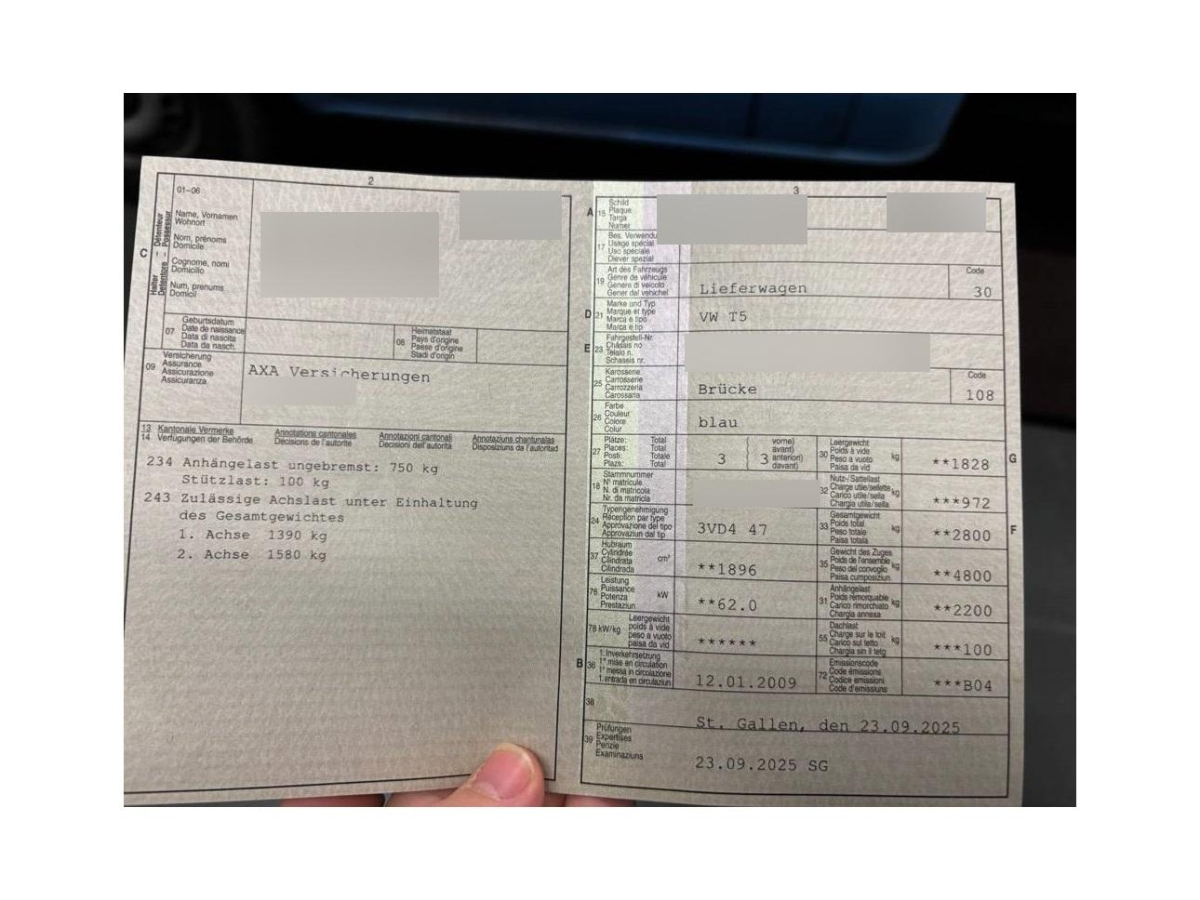 2
01-06
C
Halter
Détenteur
Detentore
Possessur
Name, Vornamen
Wohnort
Nom, prénoms
Domicile
Cognome, nomi
Domicilio
Num, prenums
Domicil
07
Geburtsdatum
Date de naissance
Data di nascita
Data da nasch.
08
Heimatstaat
Pays d'origine
Paese d'origine
Stadi d'origin
09
Versicherung
Assurance
Assicurazione
Assicuranza
AXA Versicherungen
13 Kantonale Vermerke Annotations cantonales Annotazioni cantonali Annotaziuns chantunalas
14 Verfügungen der Behörde Décisions de l'autorité Decisioni dell'autorità Disposiziuns da l'autoritad
234 Anhängelast ungebremst: 750 kg
Stützlast: 100 kg
243 Zulässige Achslast unter Einhaltung
des Gesamtgewichtes
1. Achse 1390 kg
2. Achse 1580 kg
3
A 15
Schild
Plaque
Targa
Numer
17
Bes. Verwendu
Usage spécial
Uso speciale
Diever spezial
19
Art des Fahrzeugs
Genre de véhicule
Genere di veicolo
Gener dal vehichel
Lieferwagen
Code
30
D 21
Marke und Typ
Marque et type
Marca e tipo
Marca e tip
VW T5
E 23
Fahrgestell-Nr.
Châssis no
Telaio n.
Schassis nr.
25
Karosserie
Carrosserie
Carrozzeria
Carossaria
Brücke
Code
108
26
Farbe
Couleur
Colore
Colur
blau
27
Plätze: Total
Places: Total
Posti: Totale
Plazs: Total
3
3
vorne)
avant)
anteriori)
davant)
30
Leergewicht
Poids à vide
Peso a vuoto
Paisa da vid
kg
**1828
G
18
Stammnummer
N° matricule
N. di matricola
Nr. da matricla
32
Nutz-/Sattellast
Charge utile/sellette
Carico utile/sella
Chargia utila/sella
kg
***972
24
Typengenehmigung
Réception par type
Approvazione del tipo
Approvaziun dal tip
3VD4 47
33
Gesamtgewicht
Poids total
Peso totale
Paisa totala
kg
**2800
F
37
Hubraum
Cylindrée
Cilindrata
Cilindrada
cm³
**1896
35
Gewicht des Zuges
Poids de l'ensemble
Peso del convoglio
Paisa cumposiziun
kg
**4800
76
Leistung
Puissance
Potenza
Prestaziun
kW
**62.0
31
Anhängelast
Poids remorquable
Carico rimorchiato
Chargia annexa
kg
**2200
78 kW/kg
Leergewicht
poids à vide
peso a vuoto
paisa da vid
******
55
Dachlast
Charge sur le toit
Carico sul tetto
Chargia sin il tetg
kg
***100
B 36
1. Inverkehrsetzung
1re mise en circulation
1a messa in circolazione
1. entrada en circulaziun
12.01.2009
72
Emissionscode
Code émissions
Codice emissioni
Code d'emissiuns
***B04
38
St. Gallen, den 23.09.2025
39
Prüfungen
Expertises
Perizie
Examinaziuns
23.09.2025 SG